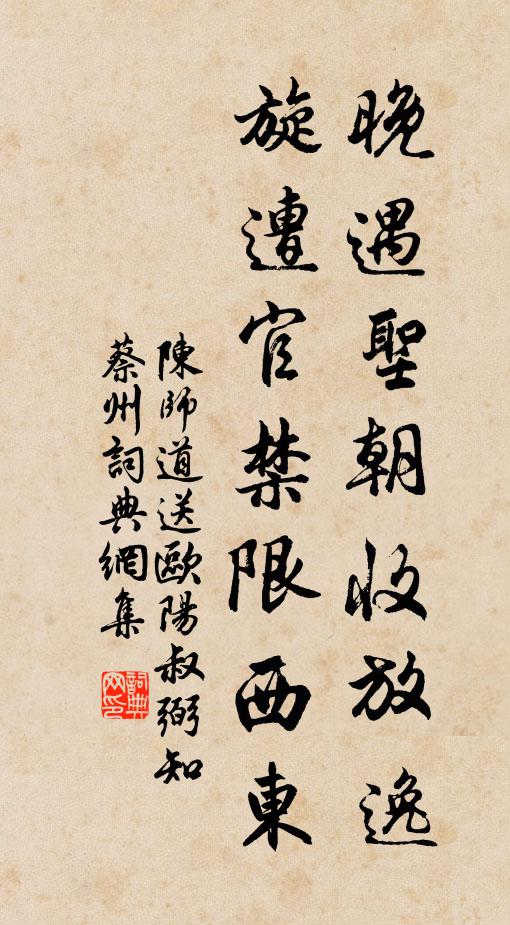 晚遇聖朝收放逸
旋遭官禁限西東
陳師道送歐陽叔弼知
蔡州詞典網集
詞典
网印